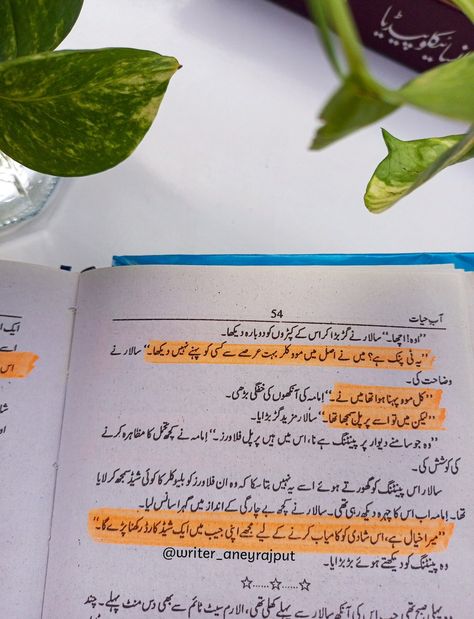 انسائیکلوپیڈیا
آبِ حیات
54
”اوہ! اچھا۔“ سالار نے گڑبڑا کر اس کے کپڑوں کو دوبارہ دیکھا۔
”یہ ٹی پنک ہے؟ میں نے اصل میں موو کلر بہت عرصے سے کسی کو پہنے نہیں دیکھا۔“ سالار نے
وضاحت کی۔
”کل موو پہنا ہوا تھا میں نے۔“ اِمامہ کی آنکھوں کی خفگی بڑھی۔
”لیکن میں تو اسے پرپل سمجھا تھا۔“ سالار مزید گڑبڑایا۔
”وہ جو سامنے دیوار پر پینٹنگ ہے نا، اس میں ہیں پرپل فلاورز۔“ اِمامہ نے کچھ تحمل کا مظاہرہ کرنے
کی کوشش کی۔
سالار اس پینٹنگ کو گھورتے ہوئے اسے یہ نہیں بتا سکا کہ وہ ان فلاورز کو بلیو کلر کا کوئی شیڈ سمجھ کر لایا
تھا۔ اِمامہ اب اس کا چہرہ دیکھ رہی تھی۔ سالار نے کچھ بے چارگی کے انداز میں گہرا سانس لیا۔
”میرا خیال ہے، اس شادی کو کامیاب کرنے کے لیے مجھے اپنی جیب میں ایک شیڈ کارڈ رکھنا پڑے گا۔“
وہ پینٹنگ کو دیکھتے ہوئے بڑبڑایا۔
@writer_aneyrajput
☆.....☆.....☆
صبح تھی جب اس کی آنکھ سالار سے پہلے کھلی تھی، الارم سیٹ ٹائم سے بھی دس منٹ پہلے۔ چند
ایک ا
اسے
اس
شا